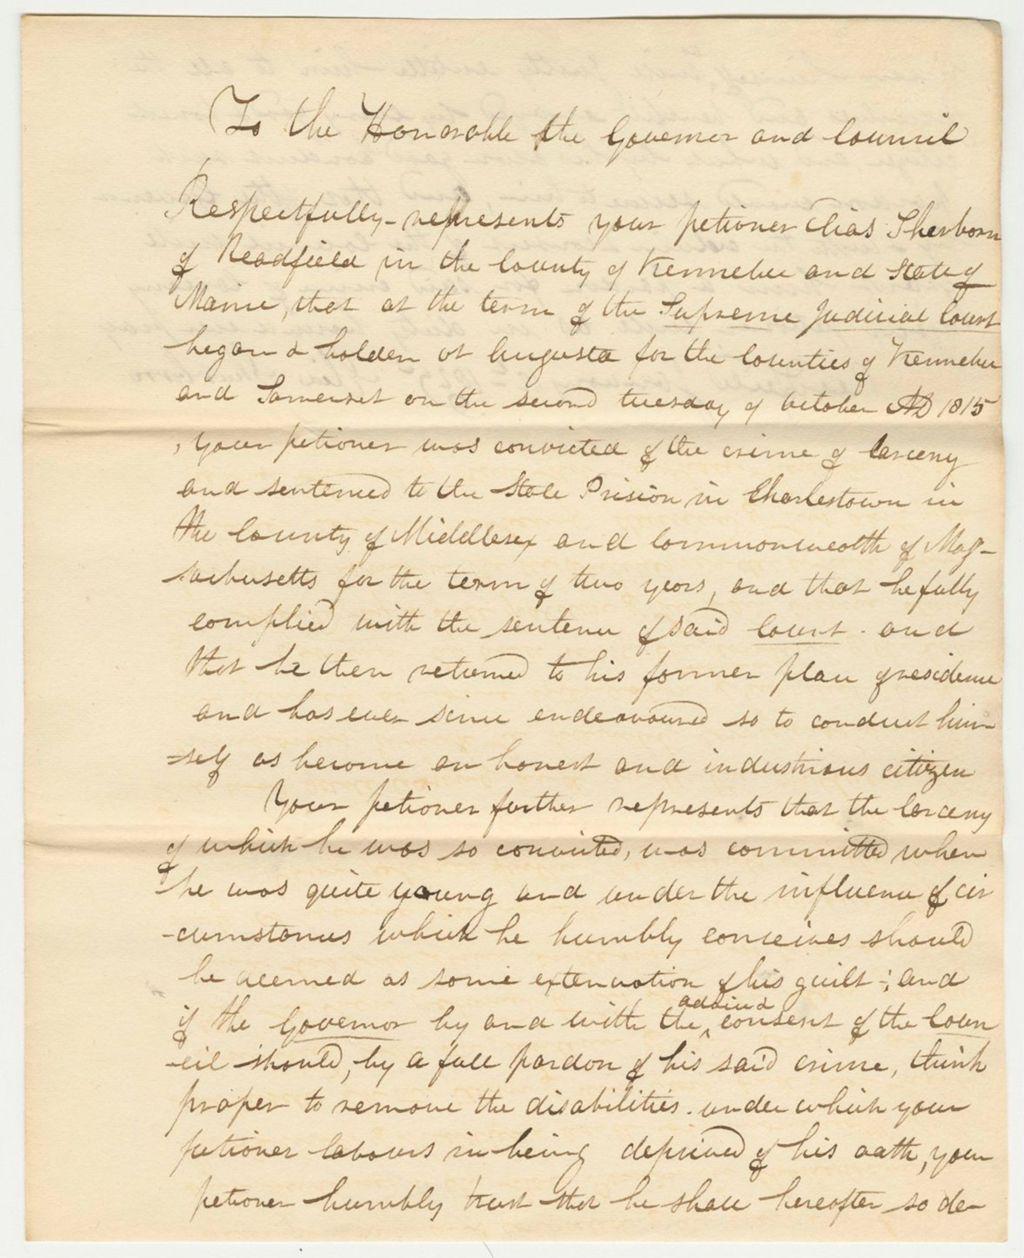 To the Honorable the Governor and Council
Respectfully represents your petioner Elias Sherborn
of Readfield in the County of Kennebec and State of
Maine, that at the term of the Supreme Judicial Court
began & holden at Augusta for the Counties of Kennebec
and Somerset on the second tuesday of October AD 1815
, your petioner was convicted of the crime of larceny
and sentenced to the State Prision in Charlestown in
the County of Middlesex and Commonwealth of Mas-
sachusetts for the term of two years, and that he fully
complied with the sentence of said Court. and
that he then returned to his former place of residence
and has ever since endeavoured so to conduct him-
-self as become an honest and industrious citizen
Your petioner further represents that the larceny
of which he was so convicted, was committed when
he was quite young and under the influence of cir
-cumstances which he humbly conceives should
be deemed as some extenuation of his guilt; and
if the Governor by and with the advice & consent of the Coun
-cil should, by a full pardon of his said crime, think
proper to remove the disabilities. under which your
petioner labours in being deprived of his oath, your
petioner humbly trust that he shall hereafter so de-